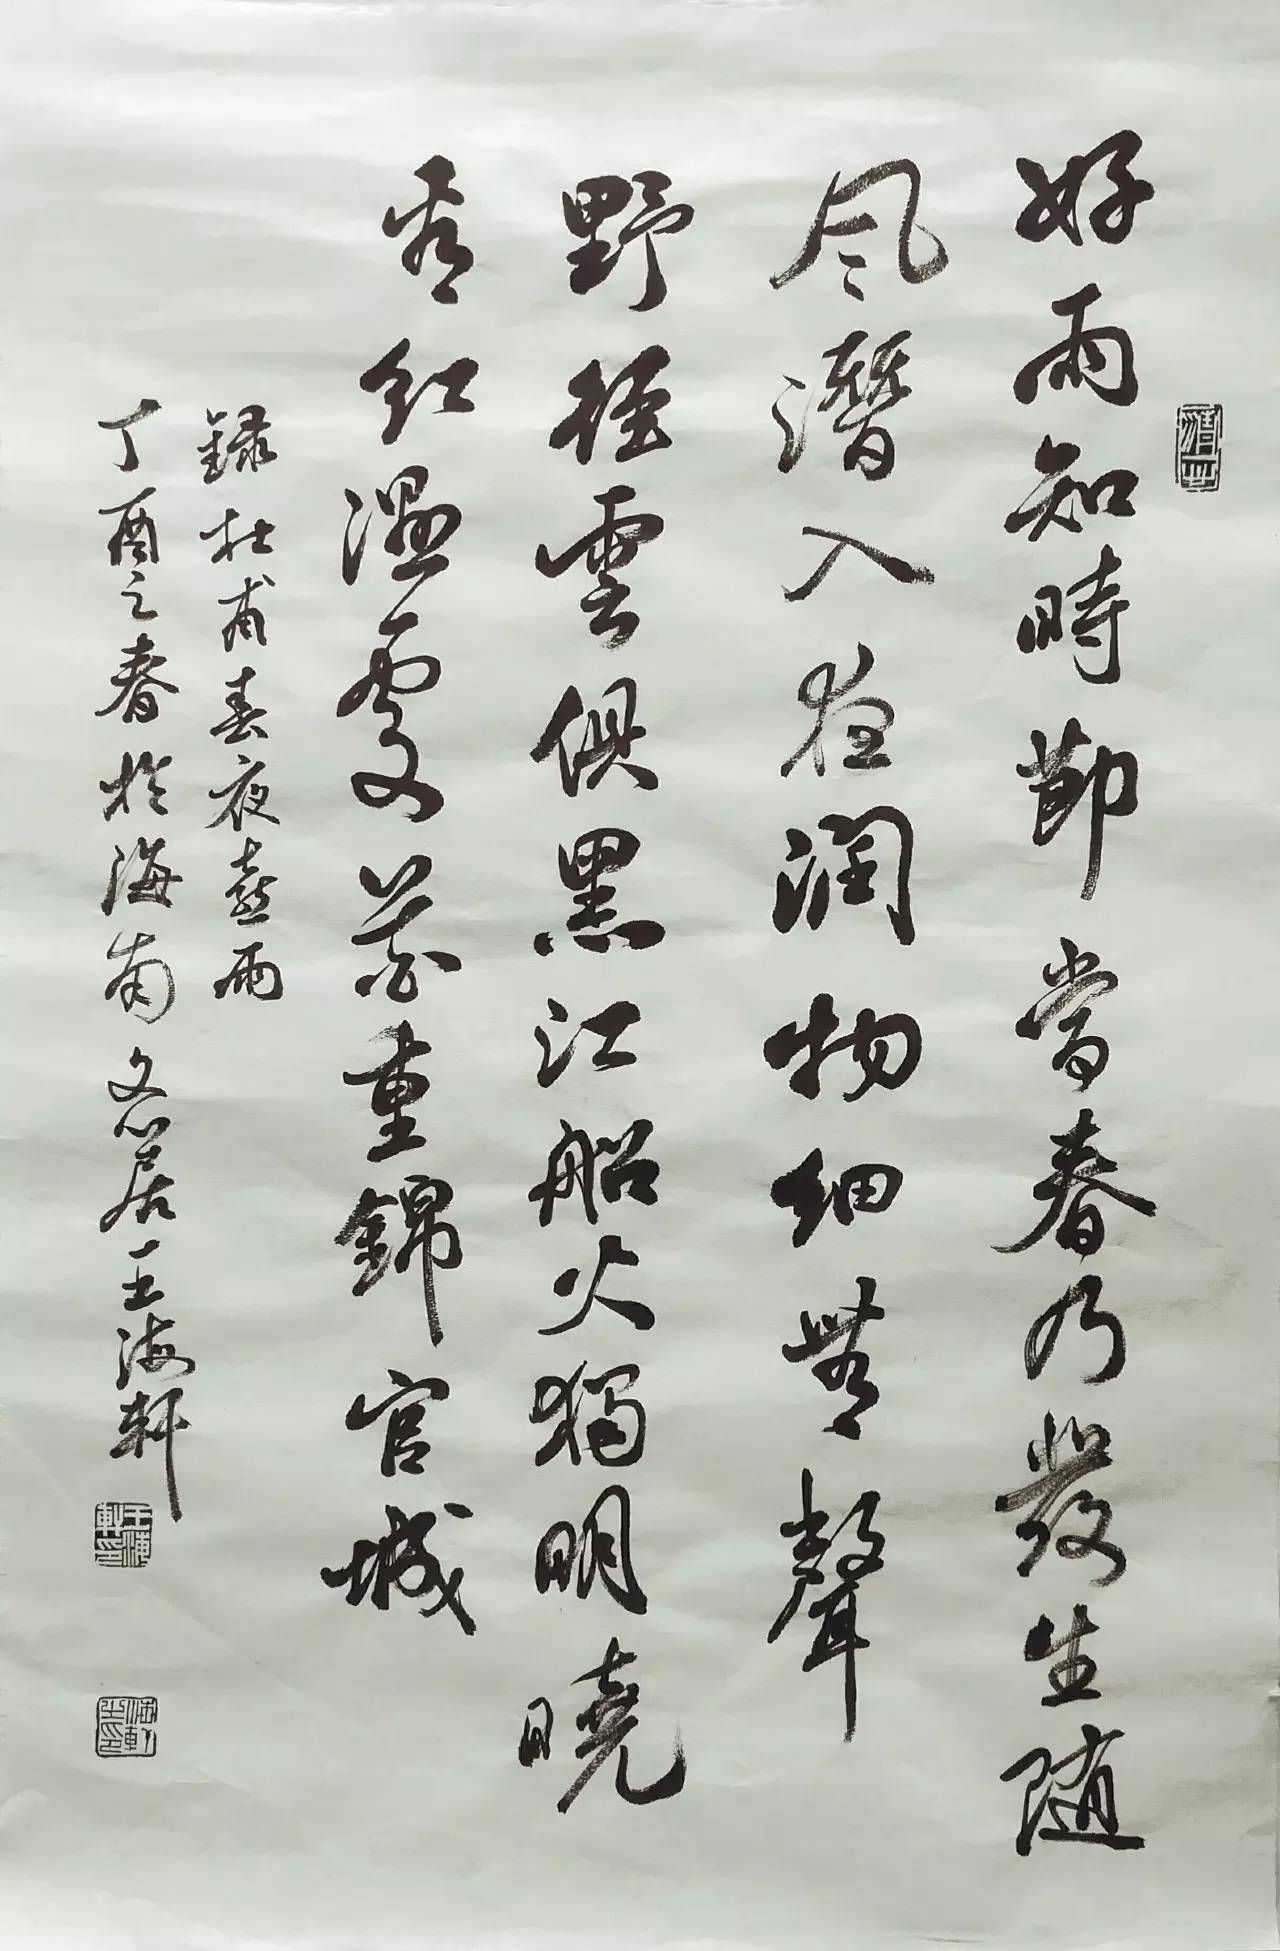 好雨知時節當春乃發生随
风潛入夜潤物細無聲
野徑雲俱黑江船火獨明曉
看红濕處花重錦官城
錄杜甫春夜喜雨
丁酉之春於海南文心居王海軒
王海軒印
海軒之印